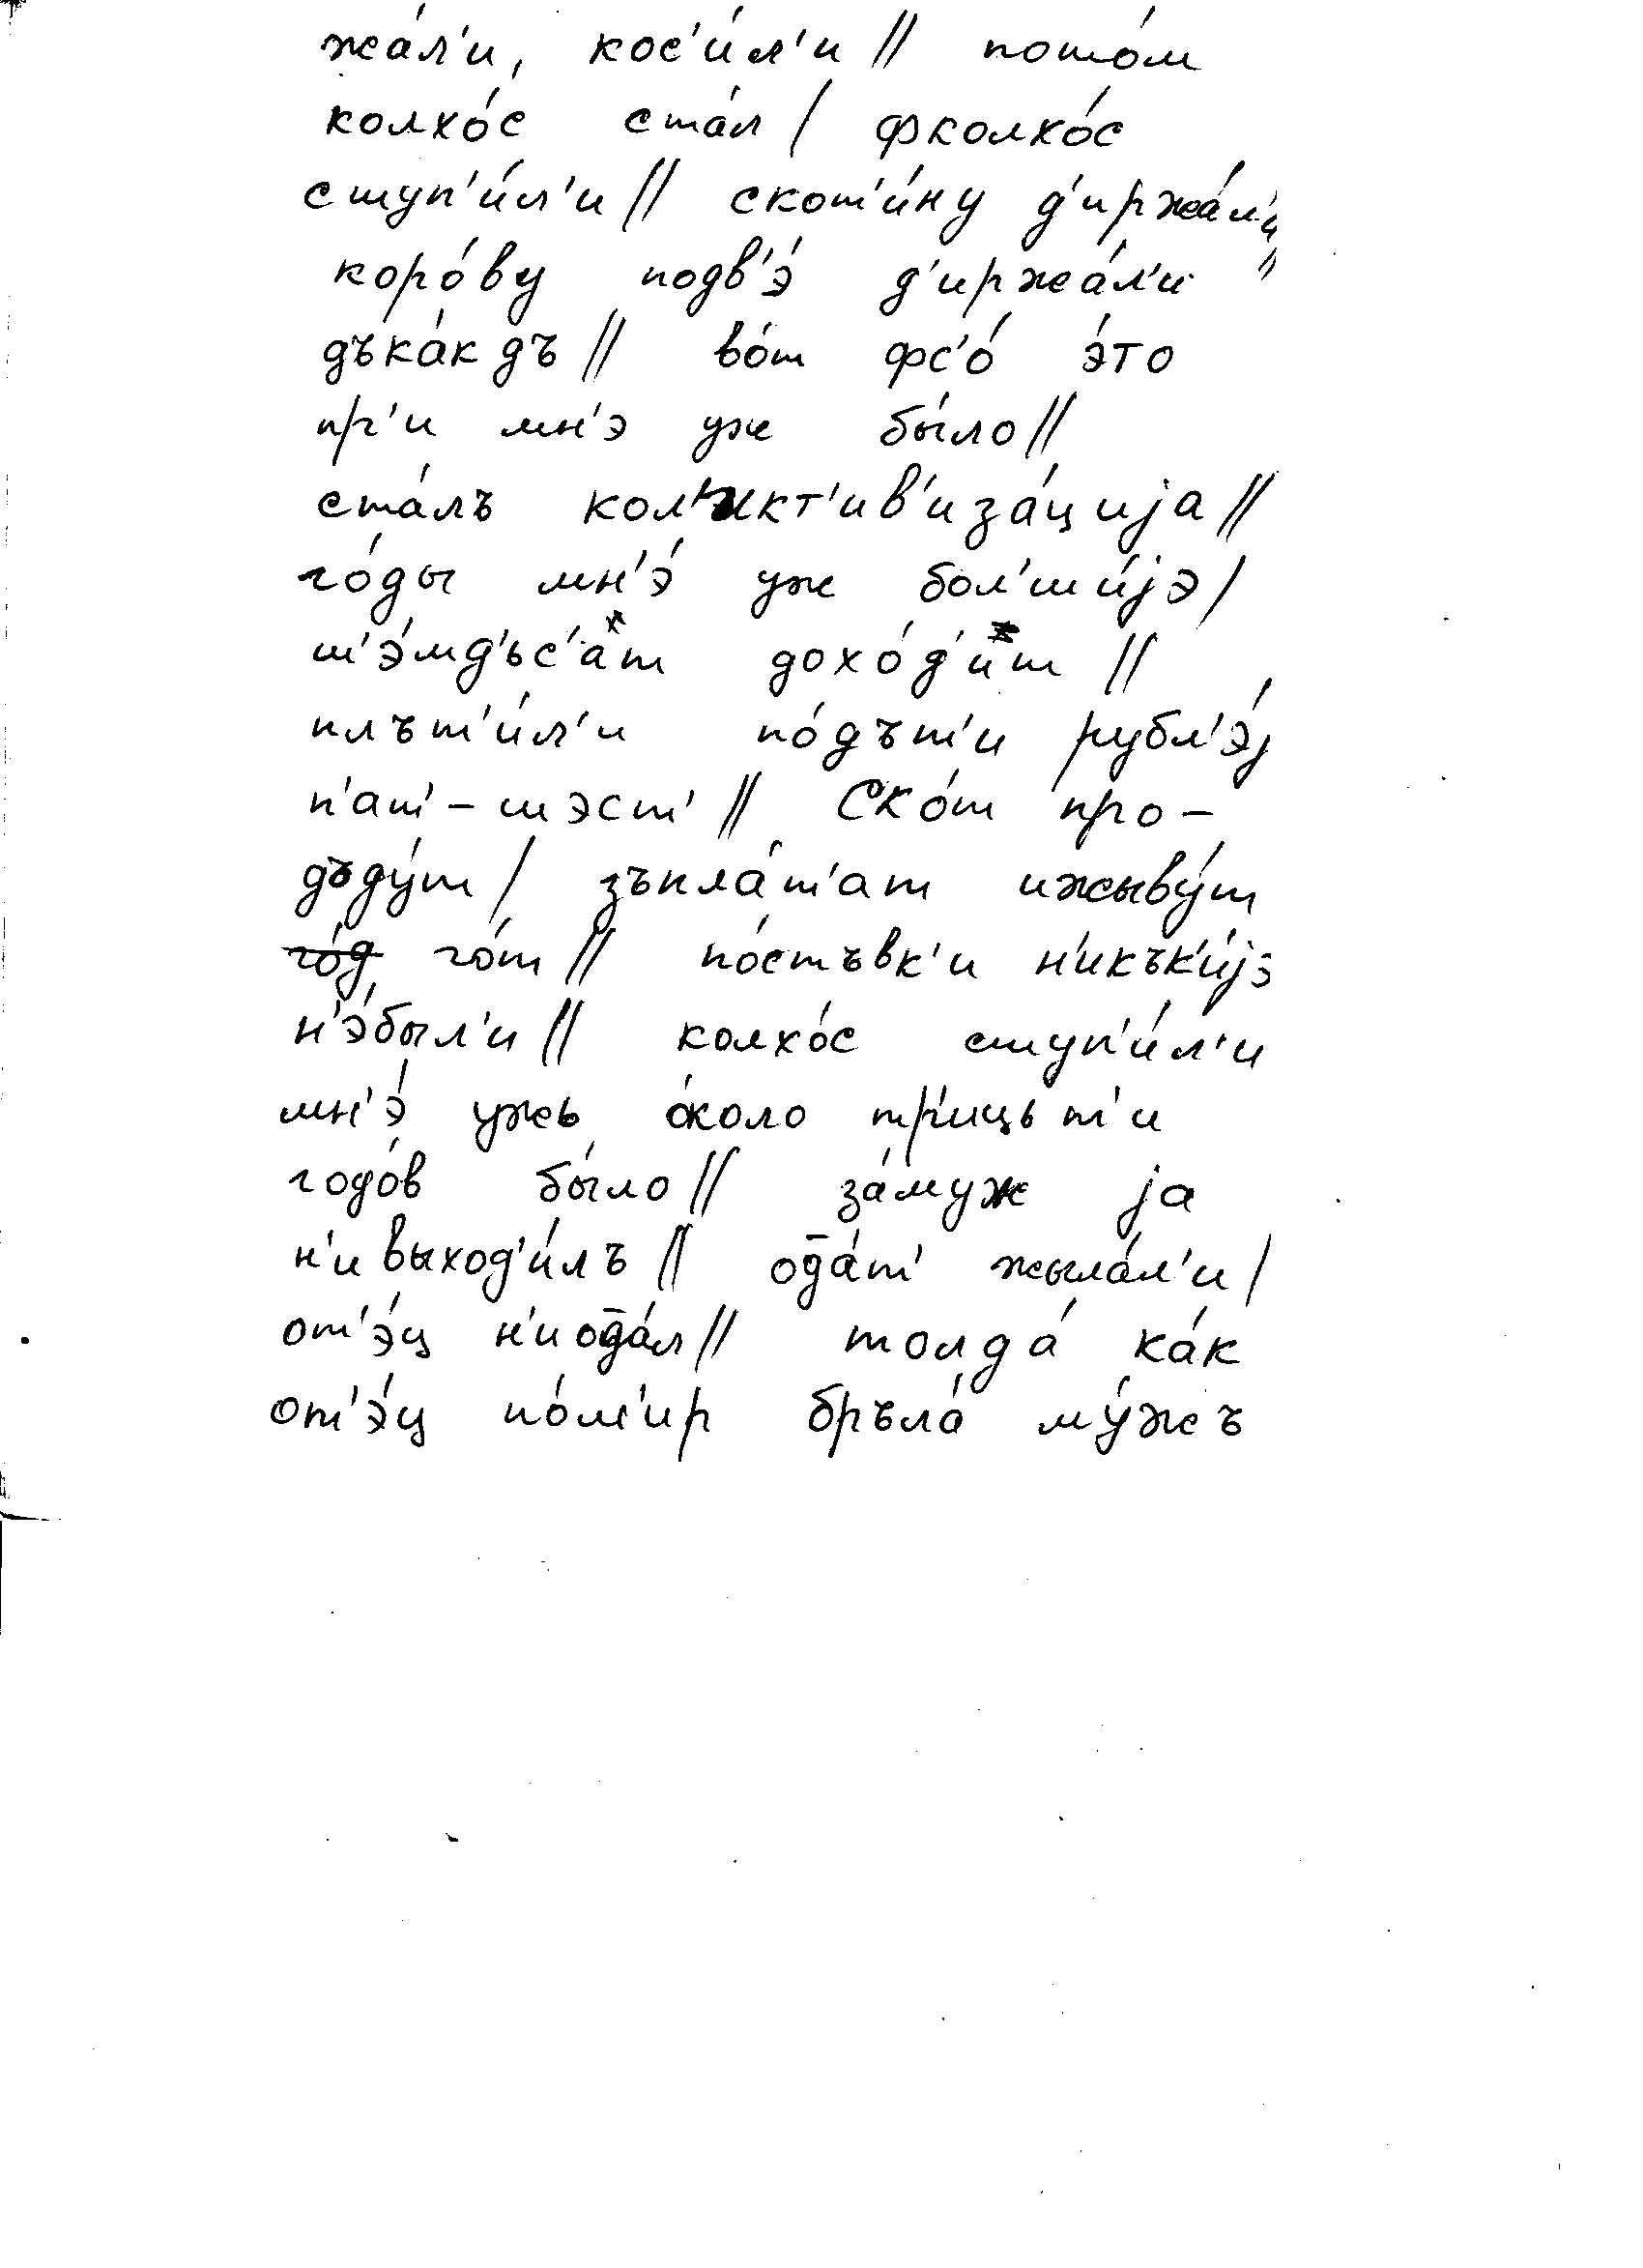 жа́л'и, кос'и́л'и // пото́м
колхо́с ста́л / фколхо́с
ступ'и́л'и // скот'и́ну д'иржа́л'и //
коро́ву подв'э́ д'иржа́л'и
дъка́к дъ // во́т фс'о́ э́то
пр'и мн'э уж бы́ло //
ста́лъ кол'икт'ив'иза́ција //
го́ды мн'э́ уж бол'ши́јэ /
ш'э́мд'ьс'ат дохо́д'ит //
плът'и́л'и по́дът'и рубл'э́ј
п'ат'-шэст' // Ско́т про-
дъду́т / зъпла́т'ат ижыву́т
~~го́д~~ го́т // по́стъвк'и н'икък'и́јэ
н'э́был'и // колхо́с ступ'и́л'и
мн'э́ ужь о́коло тр'ицьт'и
годо́в бы́ло // за́муж ја
н'и выход'и́лъ // од̄а́т' жыла́л'и /
от'э́ц н'иод̄а́л // толда́ ка́к
от'э́ц по́м'ир бръла́ му́жъ